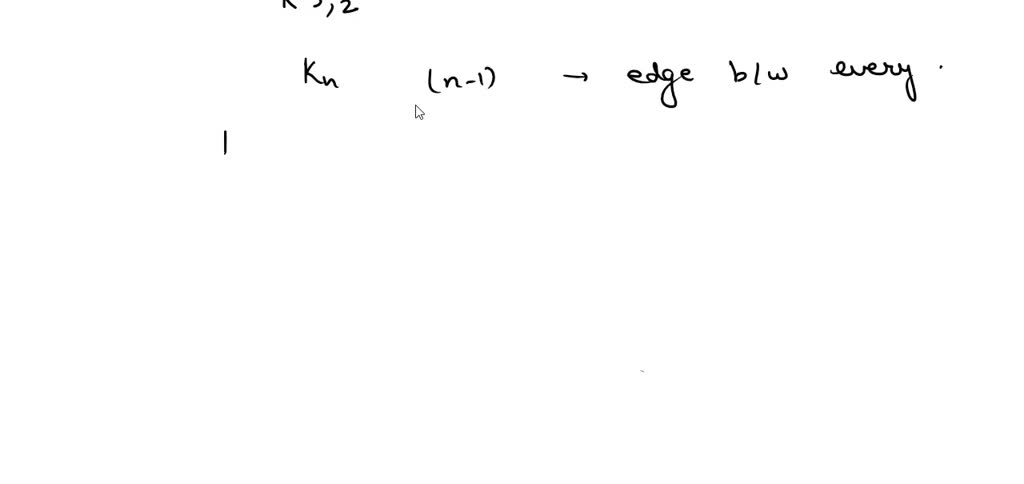 K 3,2
Kn (n-1) → edge b/w every .
|